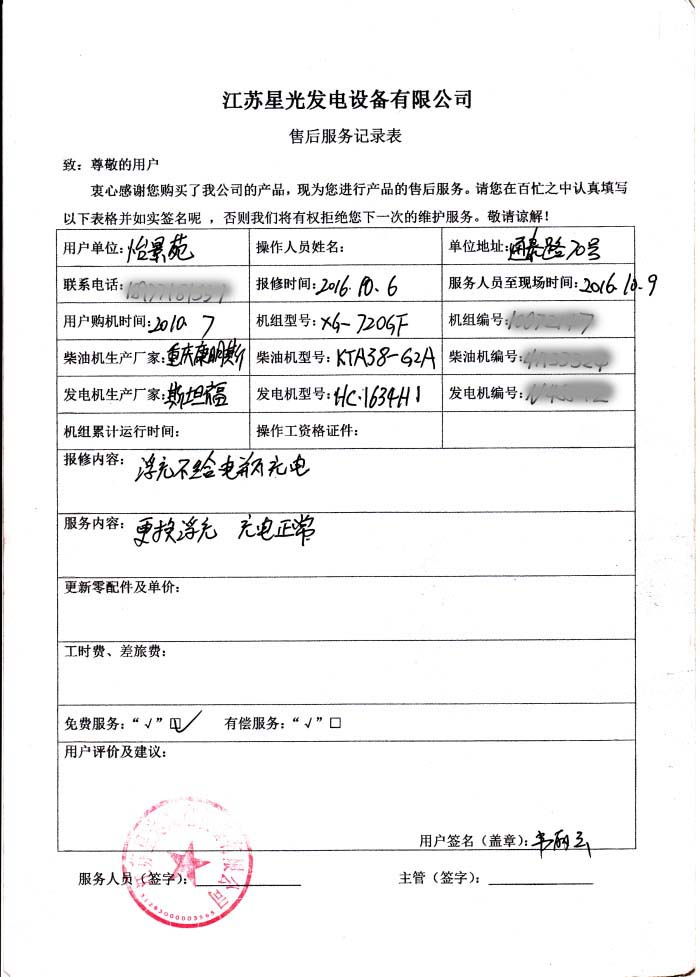 江苏星光发电设备有限公司
售后服务记录表
致：尊敬的用户
衷心感谢您购买了我公司的产品，现为您进行产品的售后服务。请您在百忙之中认真填写
以下表格并如实签名呢 ，否则我们将有权拒绝您下一次的维护服务。敬请谅解！
用户单位：怡景苑 操作人员姓名： 单位地址：通泰路70号
联系电话： 报修时间：2016.10.6 服务人员至现场时间：2016.10.9
用户购机时间：2010 7 机组型号：XG-720GF 机组编号：
柴油机生产厂家：重庆康明斯 柴油机型号：KTA38-G2A 柴油机编号：
发电机生产厂家：斯坦福 发电机型号：HC·1634H1 发电机编号：
机组累计运行时间： 操作工资格证件：
报修内容：浮充不给电瓶充电
服务内容：更换浮充 充电正常
更新零配件及单价：
工时费、差旅费：
免费服务：“√”□√ 有偿服务：“√”□
用户评价及建议：
用户签名（盖章）：
服务人员（签字）： 主管（签字）：